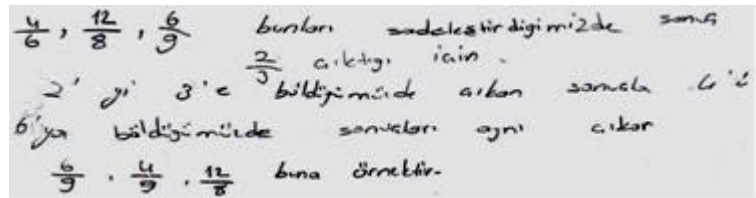 4/6, 12/8, 6/9 bunları sadeleştirdiğimizde sonuç
2/3 çıktığı için.
2'yi 3'e böldüğümüzde çıkan sonuçla 4'ü
6'ya böldüğümüzde sonuçları aynı çıkar
6/9 . 4/9 . 12/8 buna örnektir.